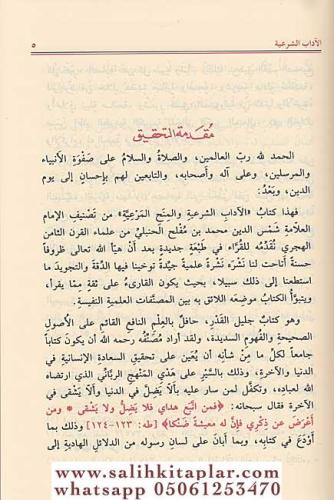 الآداب الشرعية ٥
مُقَدِّمَة التَّحقِيق
الحمد لله ربّ العالمين، والصلاةُ والسلامُ على صَفْوَةِ الأنبياء
والمرسلين، وعلى آله وأصحابه، والتابعين لهم بإحسان إلى يوم
الدين، وبَعْدُ:
فهذا كتابُ «الآدابِ الشرعيةِ والمِنَحِ المَرْعِيَّة» من تصنيفِ الإمام
العلامةِ شمسِ الدين محمد بن مُفْلحٍ الحنبليِّ من علماء القرن الثامن
الهجري نُقَدِّمُه للقُرَّاء في طبعةٍ جديدةٍ بعد أنْ هيأ الله تعالى ظروفاً
حسنةً أتاحت لنا نَشْرَه نَشْرةً علميةً جيِّدةً توخينا فيها الدِّقةَ والتجويدَ ما
استطعنا إلى ذلك سبيلا، بحيث يكون القارىءُ على ثقةٍ ممَّا يقرأ،
ويتبوَّأُ الكتابُ موضِعَه اللائق به بين المصنَّفات العلميةِ النفيسة.
وهو كتابٌ جليلُ القَدْرِ، حافلٌ بالعِلْمِ النافع القائم على الأُصولِ
الصحيحةِ والفُهومِ السديدة، ولقد أراد مُصنِّفُه رحمه الله أن يكونَ كتاباً
جامعاً لكلِّ ما مِنْ شأنِه أن يُعين على تحقيقِ السعادةِ الإنسانيةِ في
الدنيا والآخرةِ، وذلك بالسَّيْرِ على هَدْيِ المنْهَجِ الربانيِّ الذي ارتضاه
الله لعبادِه، وتكفَّل لمن سار عليه بألاَّ يَضِلَّ في الدنيا وألاَّ يَشْقى في
الآخرة فقال سبحانه: ﴿فمن اتَّبع هدايَ فلا يَضِلُّ ولا يَشْقى * ومن
أَعْرَضَ عن ذِكْري فإنَّ له معيشةً ضَنْكا﴾ [طه: ١٢٣-١٢٤] وذلك بما
أَوْدَعَ في كتابِه، وبما أبانَ على لسانِ رسوله من الدلائلِ الهادية إلى
www.salihkitaplar.com
whatsapp 05061253470